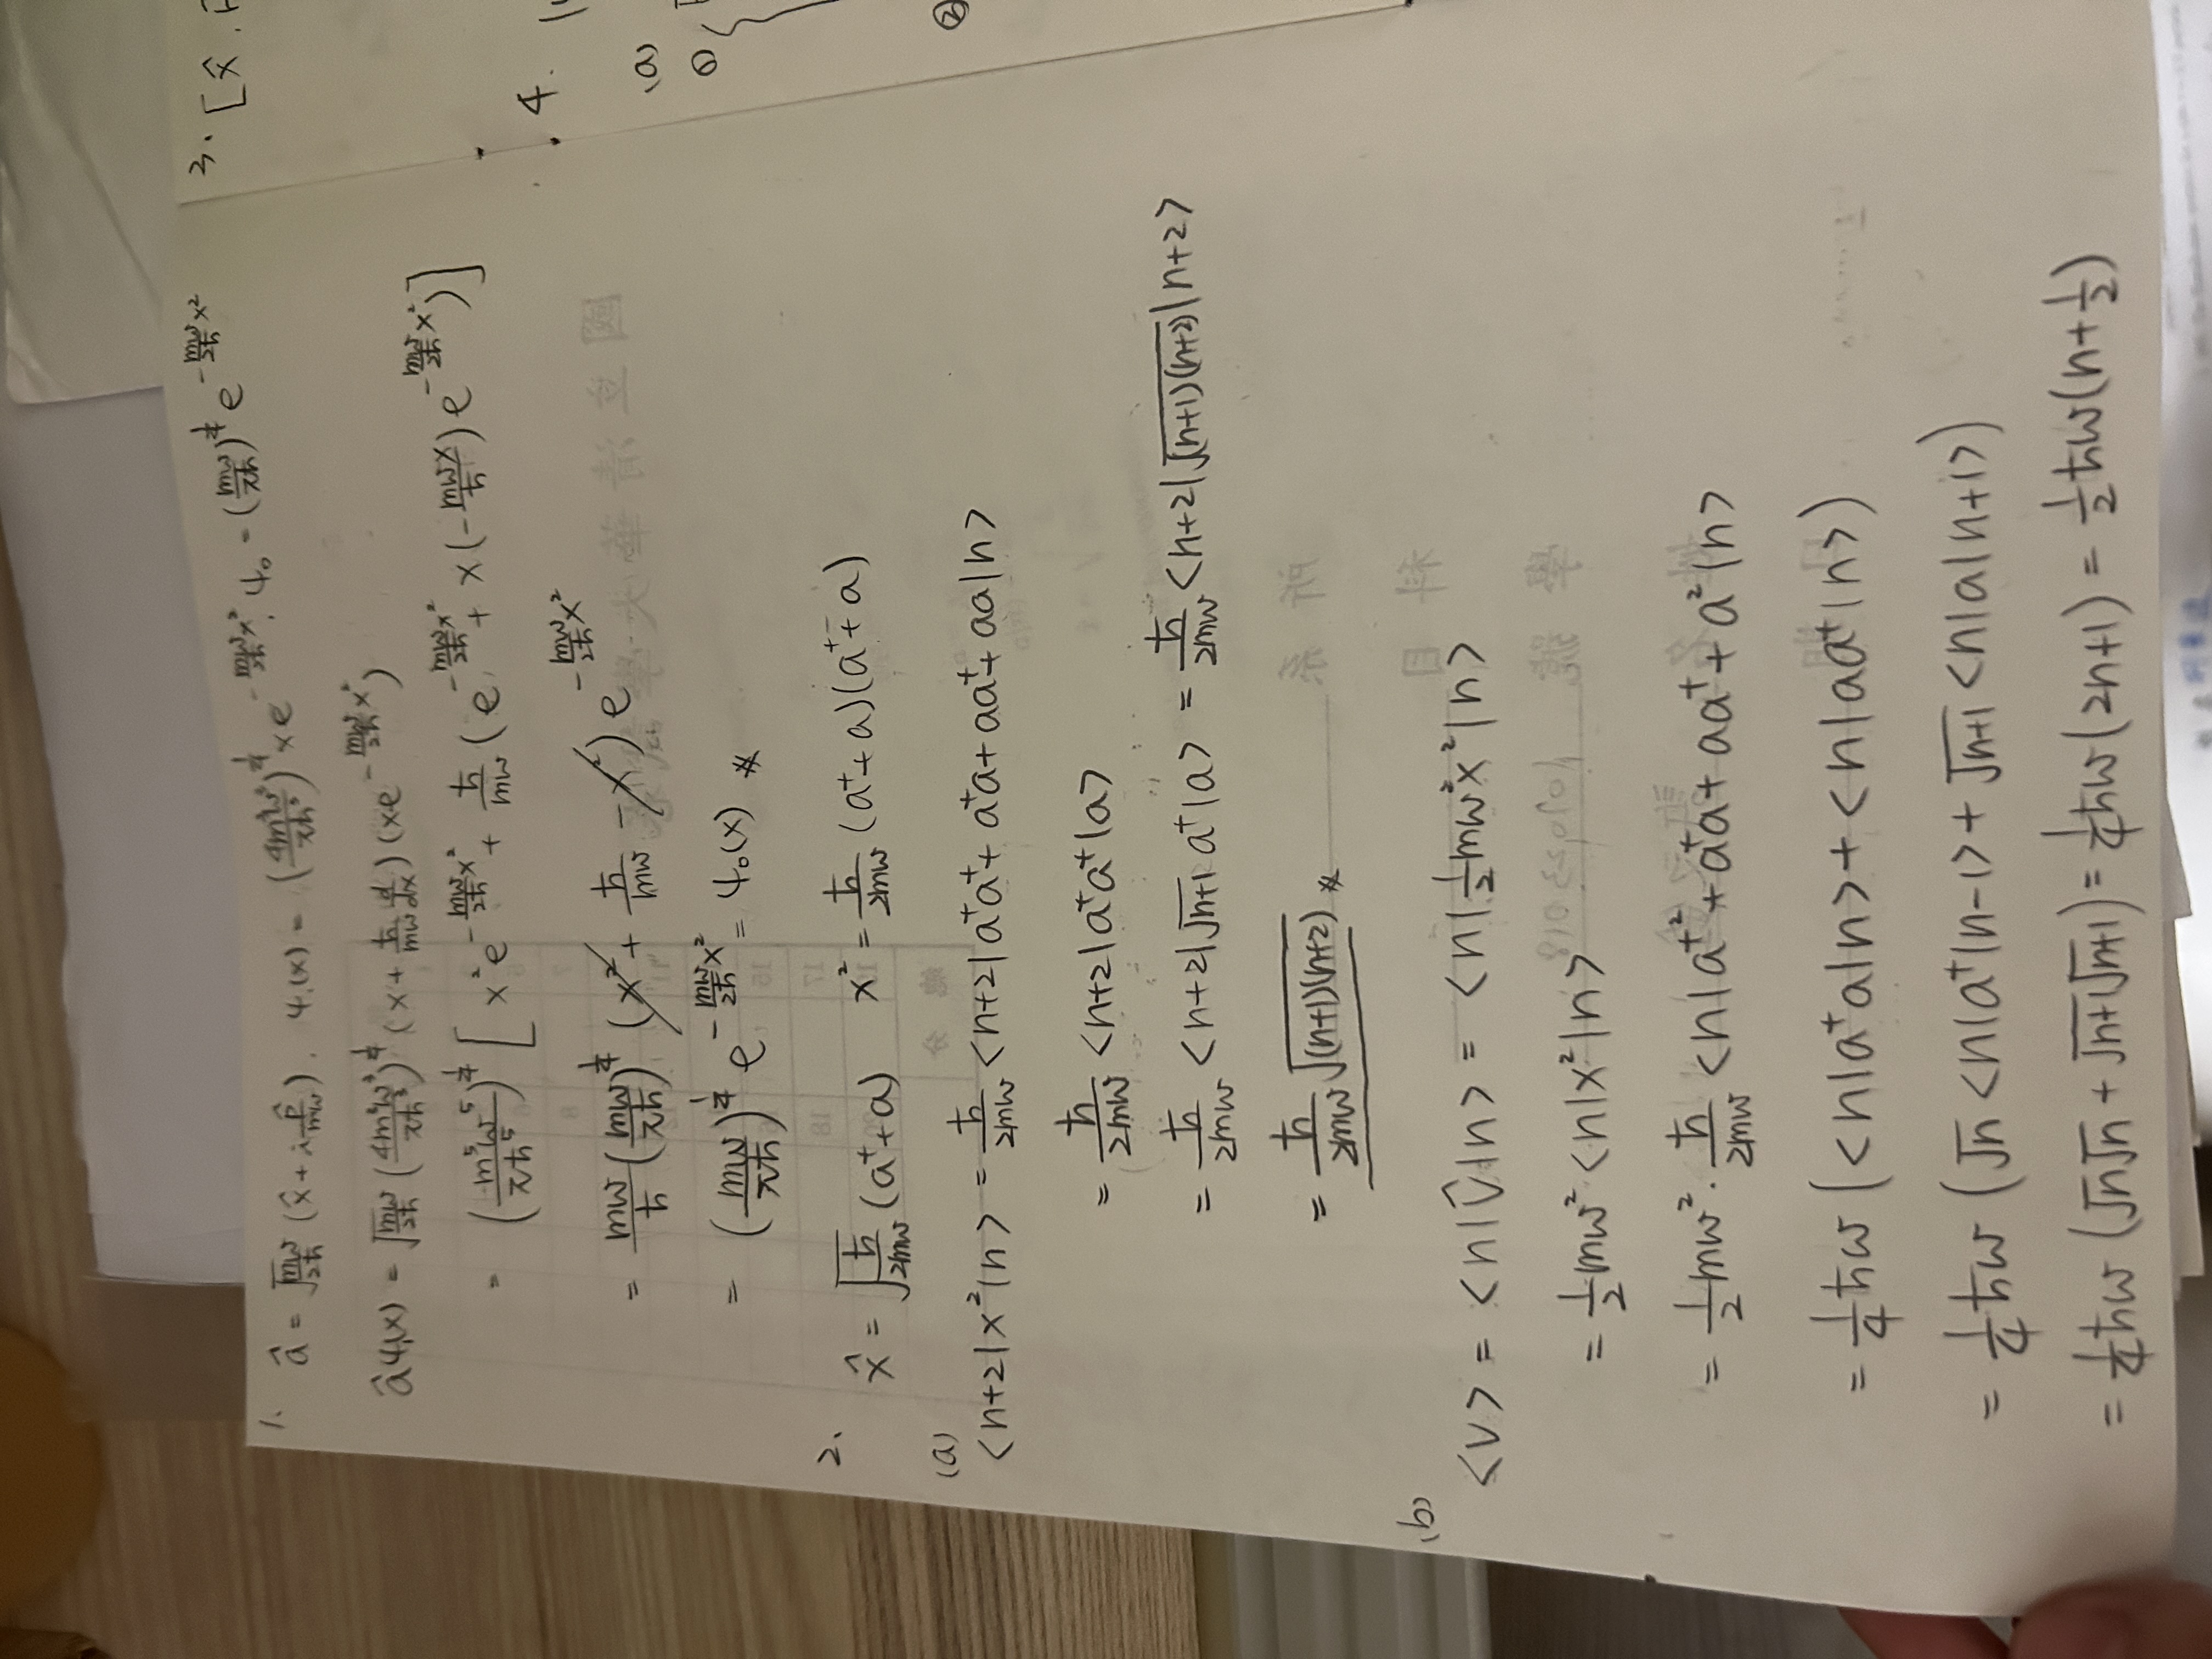 1. â = √(mω/2ħ) (x̂ + i p̂/mω), ψ₁(x) = (4m³ω³/πħ³)^(1/4) x e^(-mω/2ħ x²), ψ₀ = (mω/πħ)^(1/4) e^(-mω/2ħ x²)
âψ₁(x) = √(mω/2ħ) (4m³ω³/πħ³)^(1/4) (x + ħ/mω d/dx) (x e^(-mω/2ħ x²))
= (m⁵ω⁵/πħ⁵)^(1/4) [x² e^(-mω/2ħ x²) + ħ/mω (e^(-mω/2ħ x²) + x(-mωx/ħ) e^(-mω/2ħ x²))]
= mω/ħ (mω/πħ)^(1/4) (x² + ħ/mω - x²) e^(-mω/2ħ x²)
= (mω/πħ)^(1/4) e^(-mω/2ħ x²) = ψ₀(x) *
2. x̂ = √(ħ/2mω) (a⁺ + a) x² = ħ/2mω (a⁺ + a)(a⁺ + a)
(a)
<n+2|x²|n> = ħ/2mω <n+2|a⁺a⁺ + a⁺a + aa⁺ + aa|n>
= ħ/2mω <n+2|a⁺a⁺|a>
= ħ/2mω <n+2|√(n+1) a⁺|a> = ħ/2mω <n+2|√((n+1)(n+2))|n+2>
= ħ/2mω √((n+1)(n+2)) *
(b)
<V> = <n|V̂|n> = <n|½mω²x²|n>
= ½mω² <n|x²|n>
= ½mω² · ħ/2mω <n|a⁺² + a⁺a + aa⁺ + a²|n>
= ¼ħω (<n|a⁺a|n> + <n|aa⁺|n>)
= ¼ħω (√n <n|a⁺|n-1> + √(n+1) <n|a|n+1>)
= ¼ħω (√n√n + √(n+1)√(n+1)) = ¼ħω(2n+1) = ½ħω(n+½)
3. [x̂,
4.
(a)
①
②